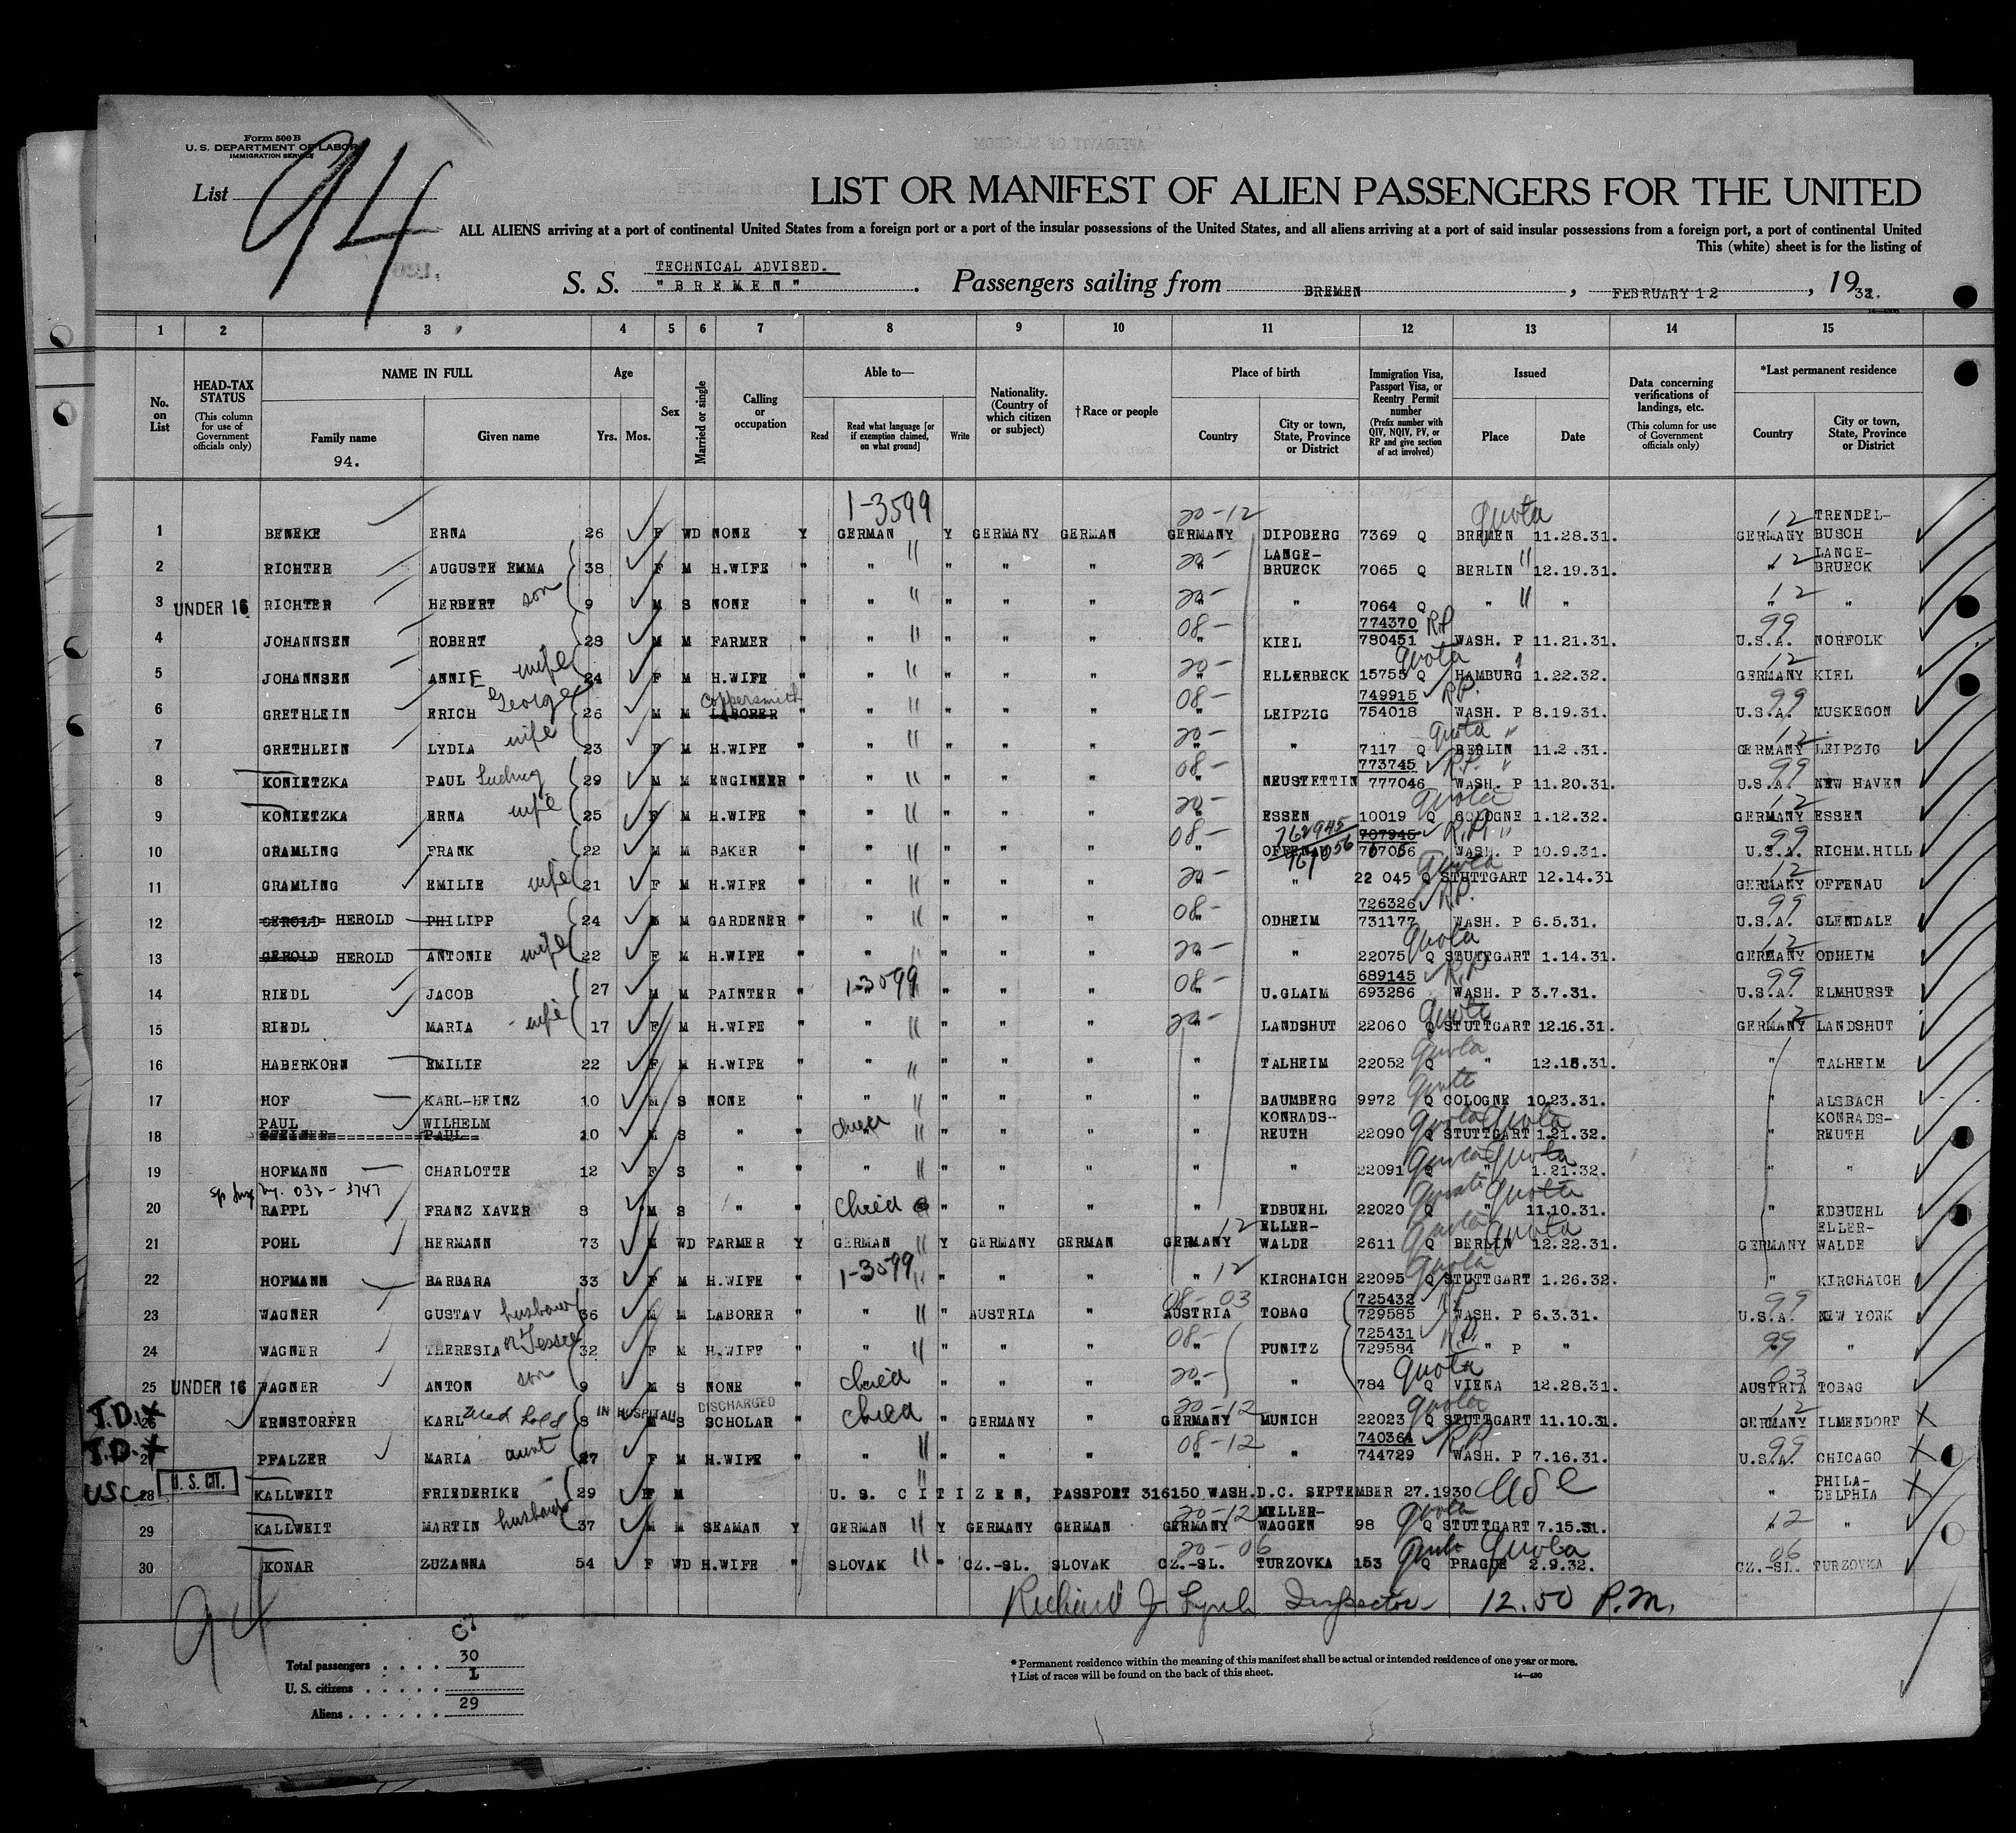 Form 500 B
U. S. DEPARTMENT OF LABOR
IMMIGRATION SERVICE
List 94
LIST OR MANIFEST OF ALIEN PASSENGERS FOR THE UNITED
ALL ALIENS arriving at a port of continental United States from a foreign port or a port of the insular possessions of the United States, and all aliens arriving at a port of said insular possessions from a foreign port, a port of continental United
This (white) sheet is for the listing of
TECHNICAL ADVISED.
S. S. "BREMEN". Passengers sailing from BREMEN, FEBRUARY 12, 1932.
1 2 3 4 5 6 7 8 9 10 11 12 13 14 15
No. on List
HEAD-TAX STATUS (This column for use of Government officials only)
NAME IN FULL Family name Given name
94.
Age Yrs. Mos.
Sex
Married or single
Calling or occupation
Able to— Read Read what language [or if exemption claimed, on what ground] Write
Nationality. (Country of which citizen or subject)
†Race or people
Place of birth Country City or town, State, Province or District
Immigration Visa, Passport Visa, or Reentry Permit number (Prefix number with QIV, NQIV, PV, or RP and give section of act involved)
Issued Place Date
Data concerning verifications of landings, etc. (This column for use of Government officials only)
*Last permanent residence Country City or town, State, Province or District
1-3599 20-12 quota 12
1 BENEKE ERNA 26 F WD NONE Y GERMAN Y GERMANY GERMAN GERMANY DIPOBERG 7369 Q BREMEN 11.28.31. GERMANY TRENDEL-BUSCH
2 RICHTER AUGUSTE EMMA 38 F M H.WIFE " " " " " 20- " LANGE-BRUECK 7065 Q BERLIN 12.19.31. " 12 LANGE-BRUECK
3 UNDER 16 RICHTER HERBERT son 9 M S NONE " " " " " 20- " " 7064 Q " " " 12 "
4 JOHANNSEN ROBERT 28 M M FARMER " " " " " 08- " KIEL 774370 RP 780451 WASH. P 11.21.31. U.S.A. 99 NORFOLK
5 JOHANNSEN ANNIE wife 24 F M H.WIFE " " " " " 20- " ELLERBECK 15755 Q quota HAMBURG 1.22.32. GERMANY 12 KIEL
6 GRETHLEIN ERICH George 26 M M LABORER Coppersmith " " " " " 08- " LEIPZIG 749915 R.P. 754018 WASH. P 8.19.31. U.S.A. 99 MUSKEGON
7 GRETHLEIN LYDIA wife 23 F M H.WIFE " " " " " 20- " " 7117 Q quota BERLIN 11.2.31. GERMANY 12 LEIPZIG
8 KONIETZKA PAUL Ludwig 29 M M ENGINEER " " " " " 08- " NEUSTETTIN 773745 R.P. 777046 WASH. P 11.20.31. U.S.A. 99 NEW HAVEN
9 KONIETZKA ERNA wife 25 F M H.WIFE " " " " " 20- " ESSEN 10019 Q quota COLOGNE 1.12.32. GERMANY 12 ESSEN
10 GRAMLING FRANK 22 M M BAKER " " " " " 08- " OFFENAU 762945 767056 707945 R.P. WASH. P 10.9.31. U.S.A. 99 RICHM.HILL
11 GRAMLING EMILIE wife 21 F M H.WIFE " " " " " 20- " " 22 045 Q quota STUTTGART 12.14.31 GERMANY 12 OFFENAU
12 GEROLD HEROLD PHILIPP 24 M M GARDENER " " " " " 08- " ODHEIM 726326 R.P. 731177 WASH. P 6.5.31. U.S.A. 99 GLENDALE
13 GEROLD HEROLD ANTONIE wife 22 F M H.WIFE " " " " " 20- " " 22075 Q quota STUTTGART 1.14.31. GERMANY 12 ODHEIM
14 RIEDL JACOB 27 M M PAINTER " 1-3599 " " " " 08- " U.GLAIM 689145 R.P 693286 WASH. P 3.7.31. U.S.A. 99 ELMHURST
15 RIEDL MARIA wife 17 F M H.WIFE " " " " " 20- " LANDSHUT 22060 Q quota STUTTGART 12.16.31. GERMANY 12 LANDSHUT
16 HABERKORN EMILIE 22 F M H.WIFE " " " " " " TALHEIM 22052 Q quota " 12.15.31. " TALHEIM
17 HOF KARL-HEINZ 10 M S NONE " " " " " " BAUMBERG 9972 Q quota COLOGNE 10.23.31. " ALSBACH
18 PAUL WILHELM STEINER PAUL 10 M S " " child " " " " KONRADS-REUTH 22090 Q quota quota STUTTGART 1.21.32. " KONRADS-REUTH
19 HOFMANN CHARLOTTE 12 F S " " " " " " " " 22091 Q quota quota " 1.21.32. " "
ny. 032 - 3747
20 RAPPL FRANZ XAVER 8 M S " " child " " " " EDBUEHL 22020 Q quota quota " 11.10.31. " EDBUEHL
21 POHL HERMANN 73 M WD FARMER Y GERMAN Y GERMANY GERMAN GERMANY 12 ELLER-WALDE 2611 Q quota quota BERLIN 12.22.31. GERMANY ELLER-WALDE
22 HOFMANN BARBARA 33 F M H.WIFE " 1-3599 " " " " 12 KIRCHAICH 22095 Q quota STUTTGART 1.26.32. " KIRCHAICH
23 WAGNER GUSTAV husband 36 M M LABORER " " " AUSTRIA " 08-03 AUSTRIA TOBAG 725432 RP 729585 WASH. P 6.3.31. U.S.A. 99 NEW YORK
24 WAGNER THERESIA or Tessie 32 F M H.WIFE " " " " " 08- " PUNITZ 725431 R.P. 729584 " P " 99 "
25 UNDER 16 WAGNER ANTON son 9 M S NONE " child " " " 20- " " 784 Q quota VIENA 12.28.31. AUSTRIA 03 TOBAG
T.D. X 26 ERNSTORFER KARL Med held 8 IN HOSPITAL M S SCHOLAR DISCHARGED " child " GERMANY " 20-12 GERMANY MUNICH 22023 Q quota STUTTGART 11.10.31. GERMANY 12 ILMENDORF X
T.D. X 27 PFALZER MARIA aunt 27 F M H.WIFE " " " " " 08-12 " " 740364 RP 744729 WASH. P 7.16.31. U.S.A. 99 CHICAGO X
USC 28 U. S. CIT. KALLWEIT FRIEDERIKE 29 F M U. S. CITIZEN, PASSPORT 316150 WASH.D.C. SEPTEMBER 27.1930 USC " PHILA-DELPHIA X
29 KALLWEIT MARTIN husband 37 M M SEAMAN Y GERMAN Y GERMANY GERMAN 20-12 GERMANY MELLER-WAGGEN 98 Q quota STUTTGART 7.15.31. " 12 "
30 KONAR ZUZANNA 54 F WD H.WIFE " SLOVAK " CZ.-SL. SLOVAK 20-06 CZ.-SL. TURZOVKA 153 Q quota quota PRAGUE 2.9.32. CZ.-SL. 06 TURZOVKA
Richard J. Lynch Inspector - 12.50 P.M.
94
Total passengers . . . . 30
U. S. citizens . . . . . 1
Aliens . . . . . . 29
* Permanent residence within the meaning of this manifest shall be actual or intended residence of one year or more.
† List of races will be found on the back of this sheet. 14—430